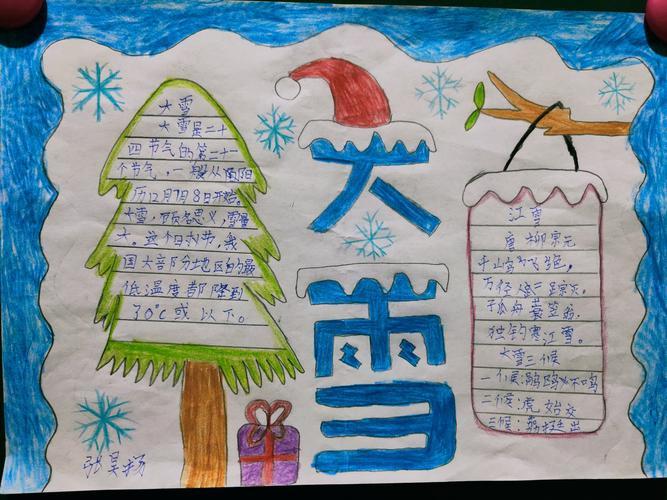 大雪
大雪是二十
四节气的第二十一
个节气，一般从阳
历12月7、8日开始。
大雪，顾名思义，雪量
大。这个时节，我
国大部分地区的最
低温度都降到
了0℃或以下。
大雪
江雪
唐 柳宗元
千山鸟飞绝，
万径人踪灭。
孤舟蓑笠翁，
独钓寒江雪。
大雪三候
一候：鹖鸥不鸣
二候：虎始交
三候：荔挺出
张昊扬